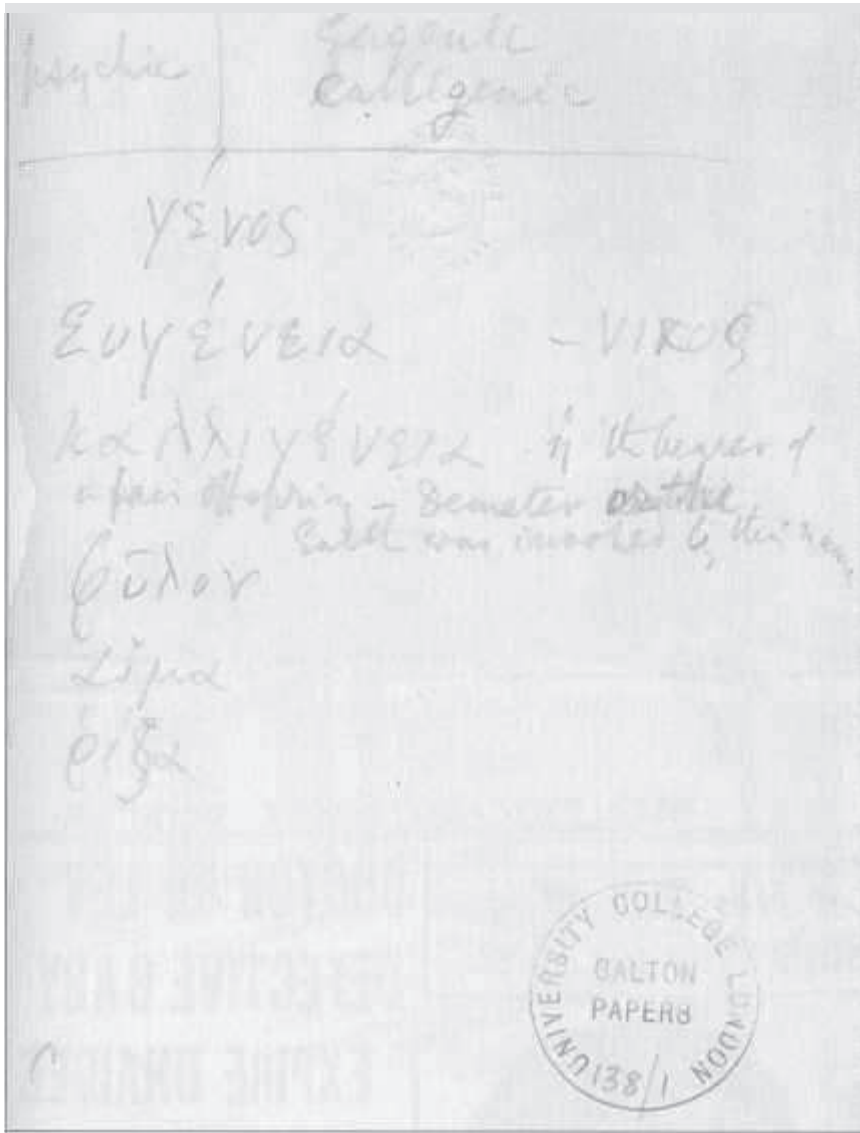 psychic Eugenic
Calligenic
γένος
Ευγένεια – νικος
καλλιγένεια ἡ the bearer of
a fair offspring – Demeter or the
Earth was invoked by this name
φῦλον
ρίζα
UNIVERSITY COLLEGE LONDON
GALTON
PAPERS
138/1